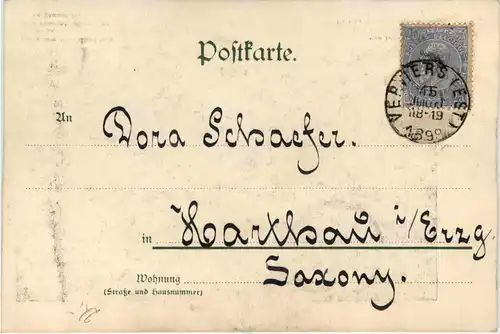 Postkarte.
VERVIERS (EST)
15
JUIL
18-19
1899
An
Dora Schaefer.
in Harthau i/Erzg.
Saxony.
Wohnung
(Straße und Hausnummer)